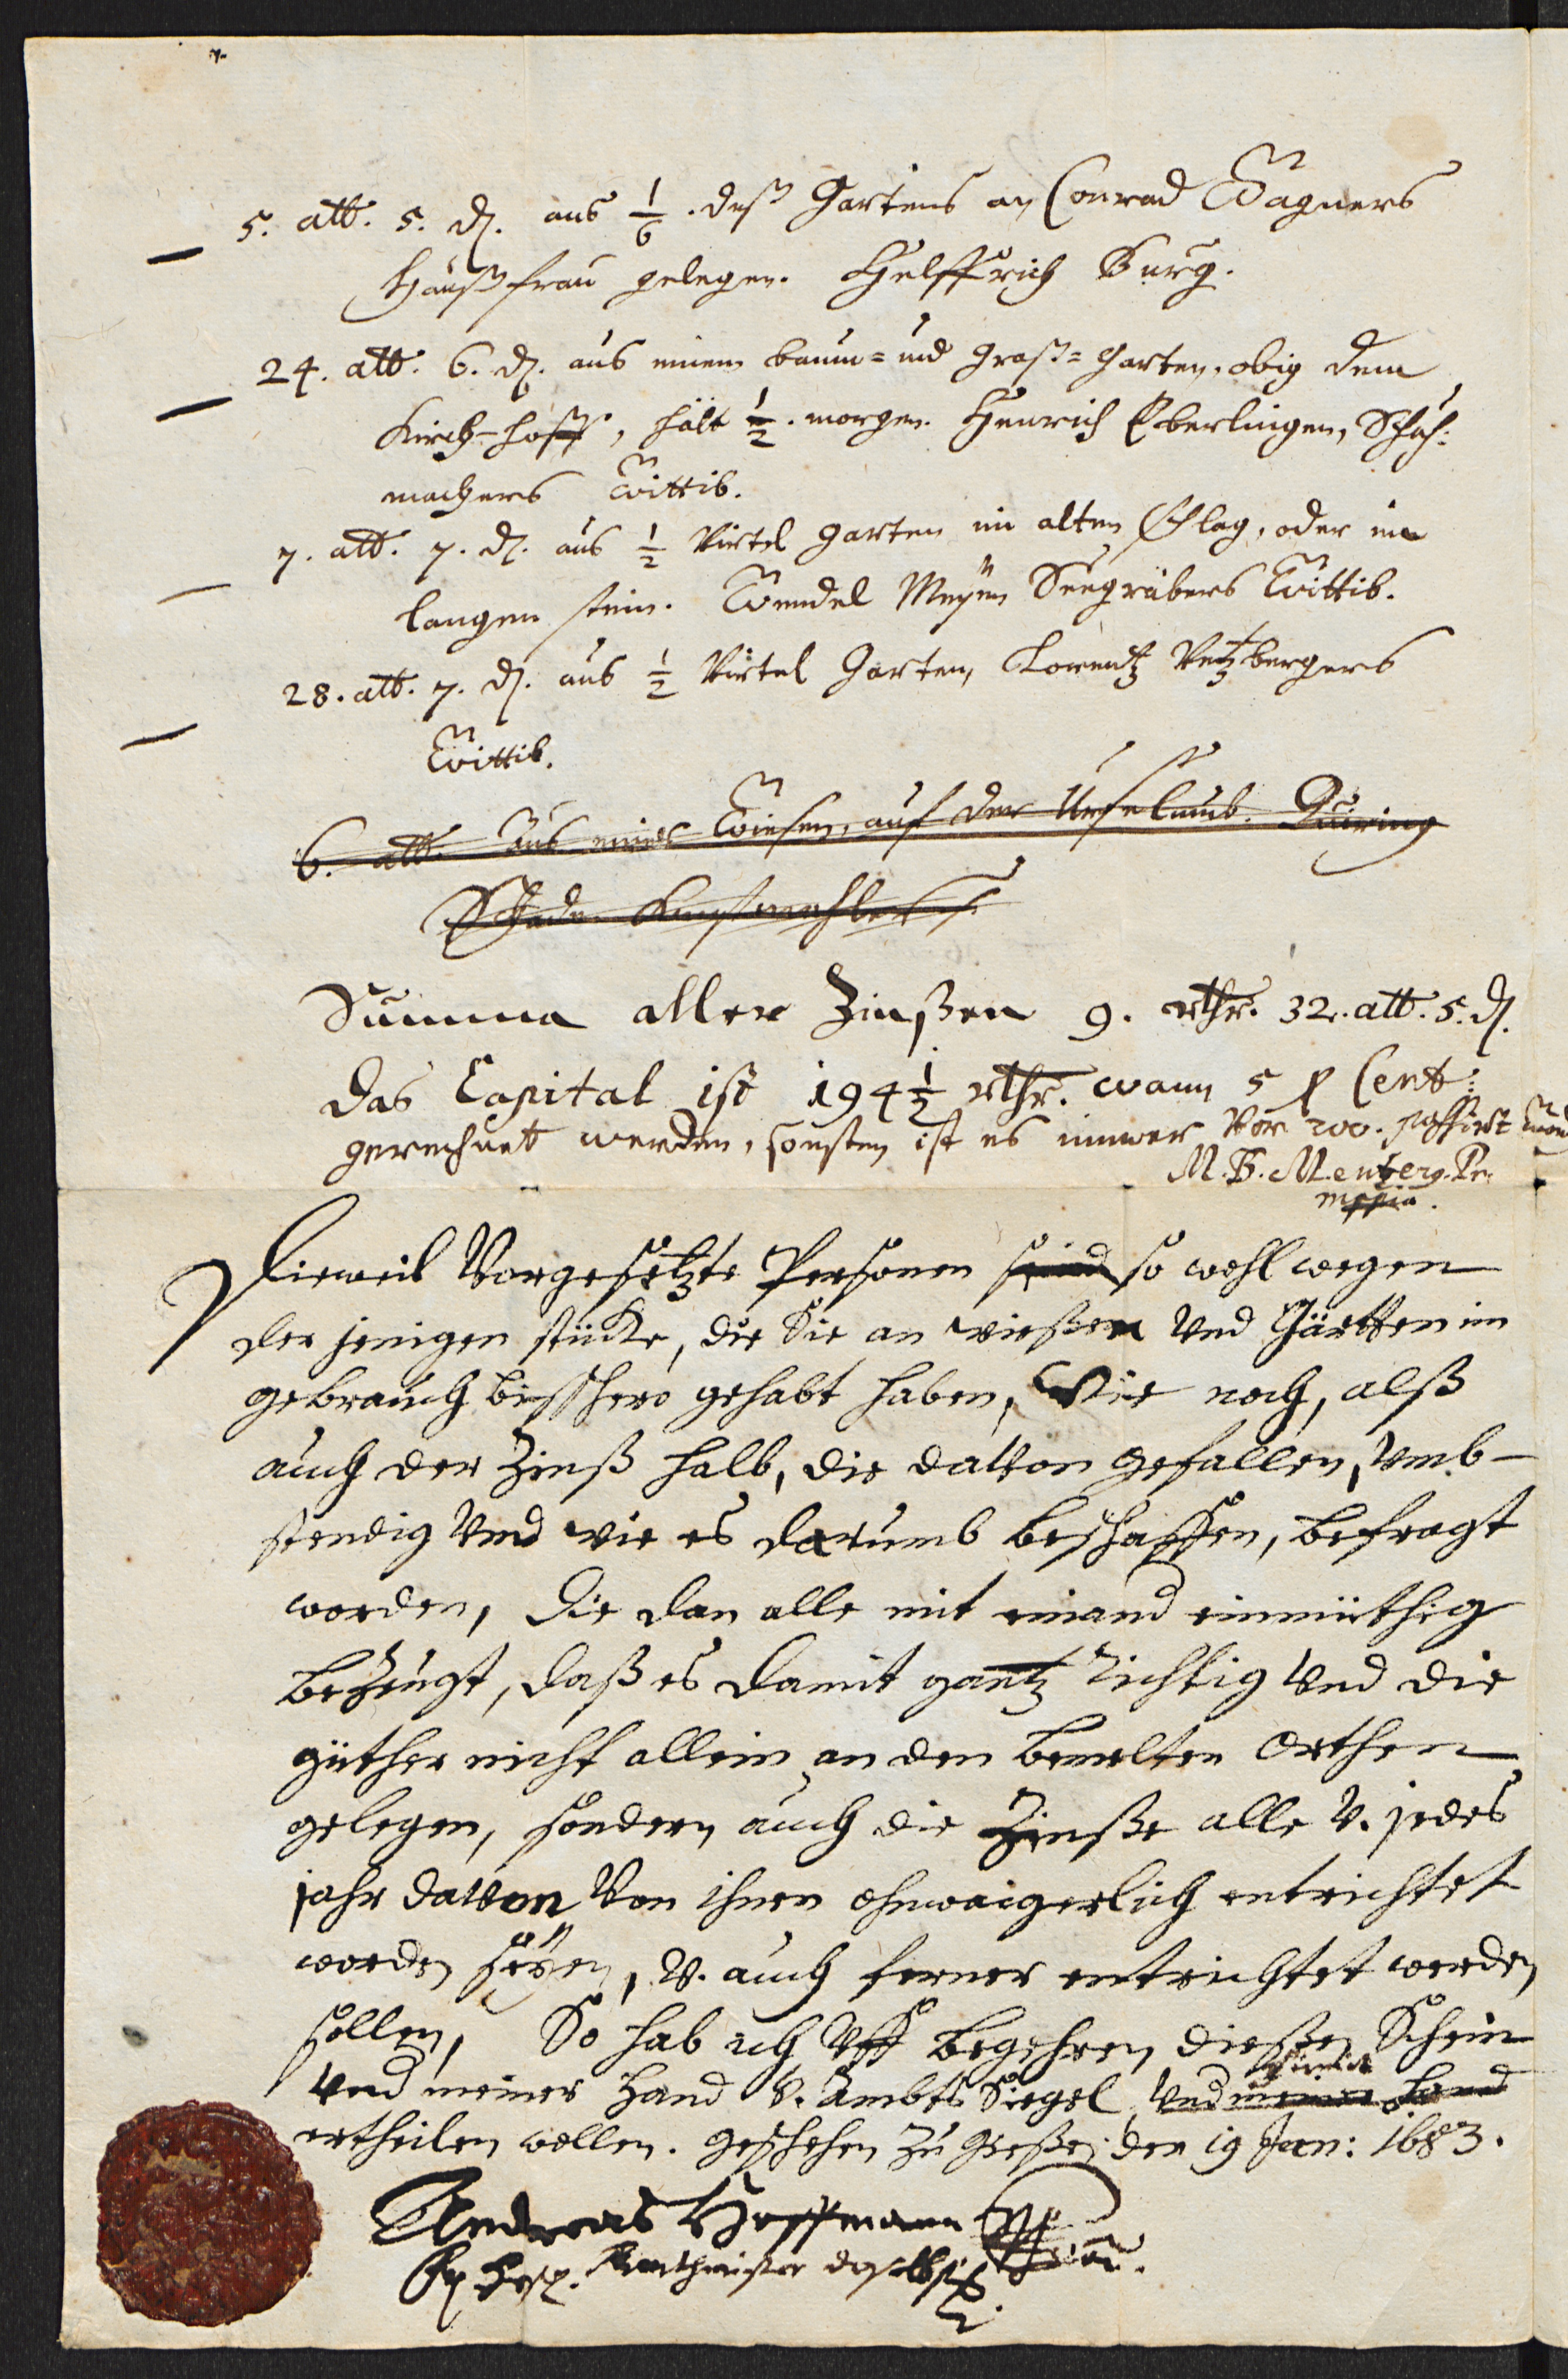 5. alb. 5. ₰. aus 1/6. deß Gartens an Conrad Wagners
Haußfrau gelegen. Helffrich Burg.
24. alb. 6. ₰. aus einem baum= und Graß=Garten, obig dem
Kirch-hoff, hält 1/2. morgen. Henrich Eberlingen, Schuh:
machers Wittib.
7. alb. 7. ₰. aus 1/2 Virtel Garten im alten Schlag, oder im
langen stein. Wendel Meyen Seegräbers Wittib.
28. alb. 7. ₰. aus 1/2 Virtel Garten, Lorentz Vetzbergers
Wittib.
6. alb. Aus einer Wiesen, auf der Ursulumb. Quirins
Schade
Summa aller Zinßen 9. rthr. 32. alb. 5. ₰.
Das Capital ist 194 1/2 rthr. wann 5 p Cent:
gerechnet werden, sonsten ist es immer vor 200. passirt
M. B. Mentzer
mppia.
Dieweil Vorgesetzte Personen seind so wohl wegen
der jenigen stücke, die Sie an wießen Vnd Gärtten im
gebrauch bißhero gehabt haben, Wie noch, alß
auch der Zinß halb, die davon gefallen, Vmb-
stendig Vnd wie es darumb beschaffen, befragt
worden, Die dan alle mit einand einmüthig
bezeugt, daß es damit gantz richtig Vnd die
güther nicht allein an den bemelten Orthen
gelegen, sondern auch die Zinße alle V. jedes
jahr davon Von ihnen ohnwaigerlich entrichtet
worden seyen, V. auch ferner entrichtet werden
sollen, So hab ich Vff begehren dießen Schein
Vnd meiner Hand V. Ambts Siegel Vnd meiner Hand
ertheilen wollen. Geschehen zu Gießen den 19 Jan: 1683.
Andreas Hoffmann
Fr. Heß. Renthmeister daselbst